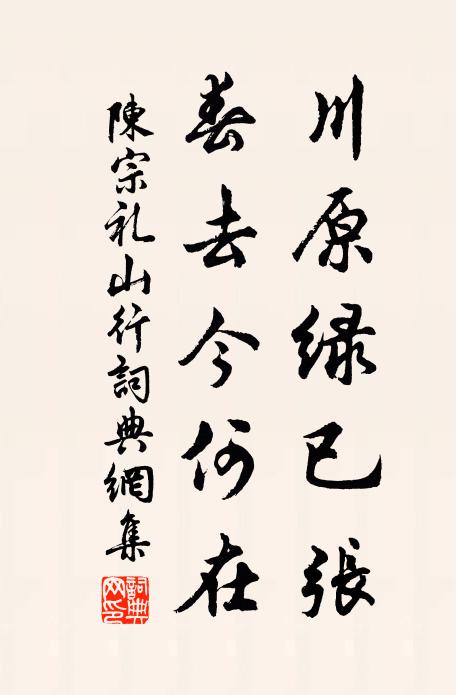 川原绿已張
春去今何在
陳宗礼山行詞典網集
詞典網印